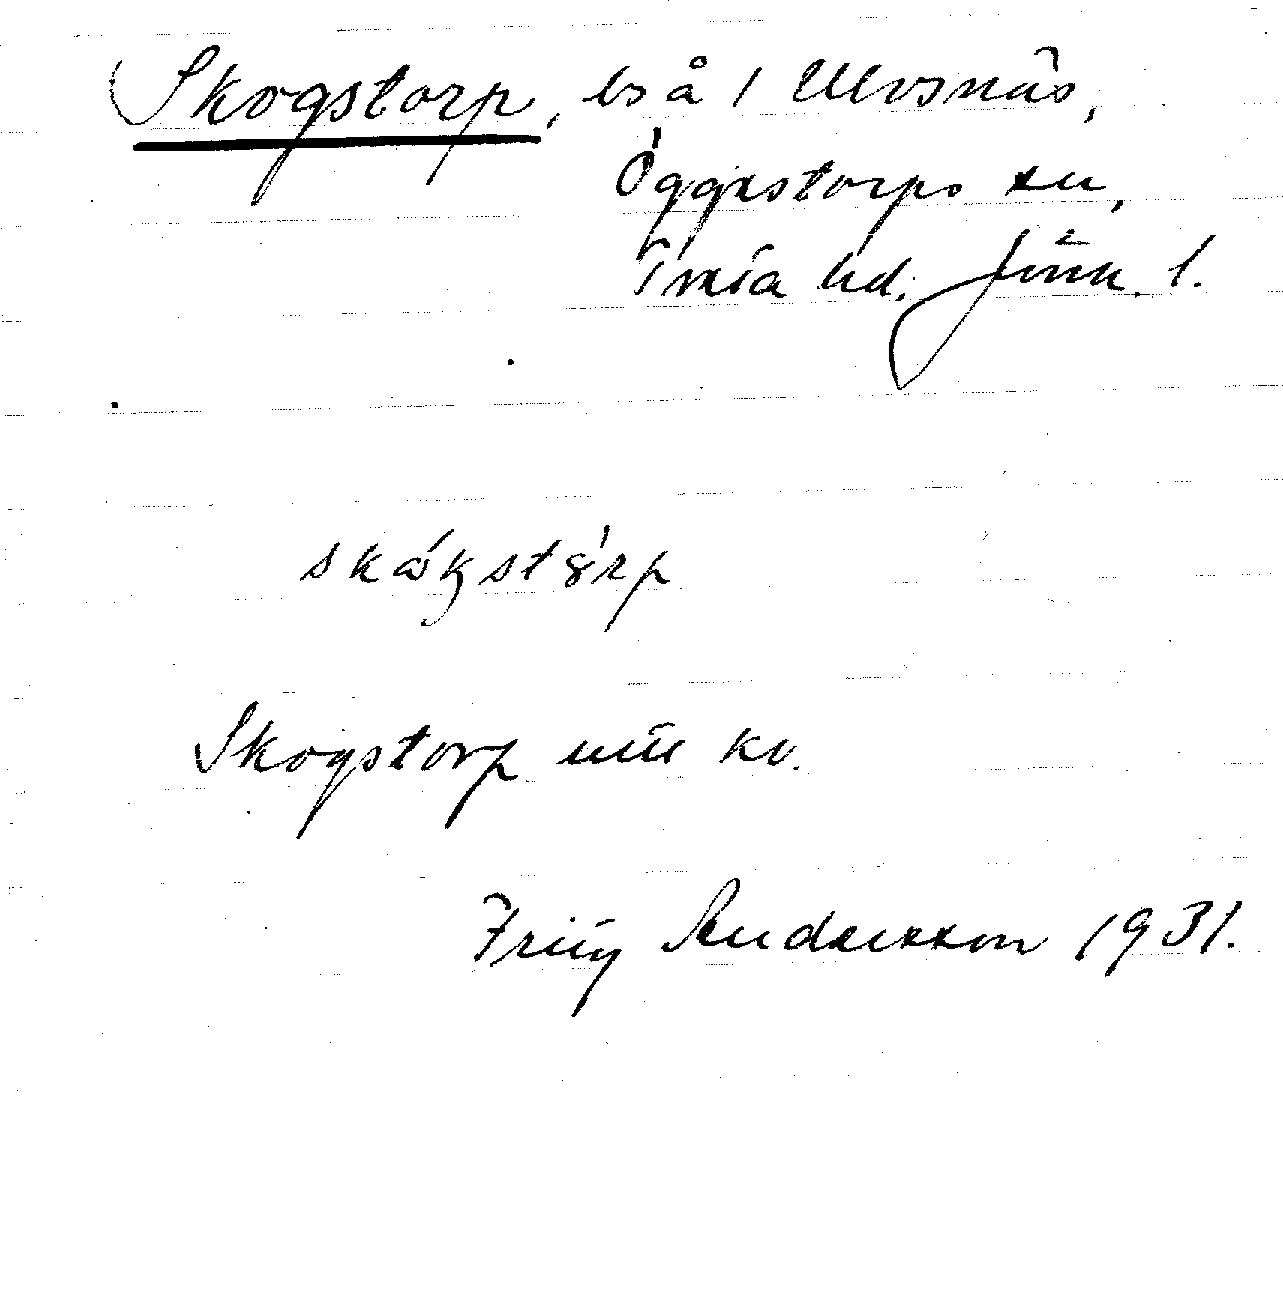 Skogstorp, bs å / Ulvsnäs,
Öggestorps sn,
Tveta hd, Jönk. l.
skógstòrp
Skogstorp
Andersson 1931.